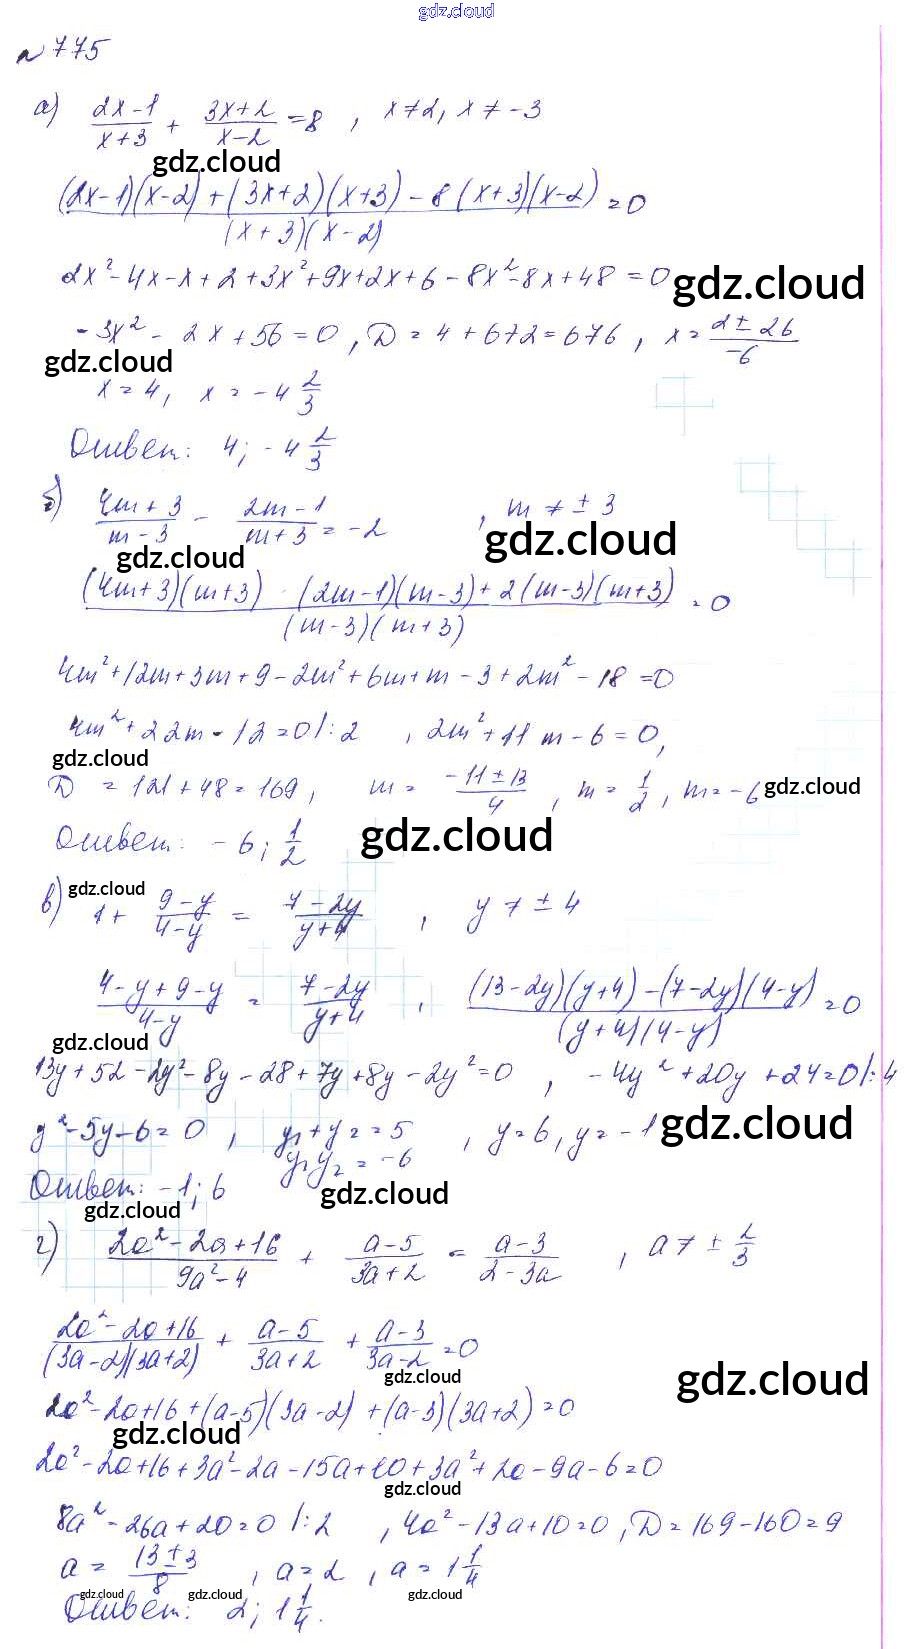 gdz.cloud
№775
а) (2x-1)/(x+3) + (3x+2)/(x-2) = 8 , x≠2, x≠-3
gdz.cloud
((2x-1)(x-2)+(3x+2)(x+3)-8(x+3)(x-2))/((x+3)(x-2)) = 0
2x²-4x-x+2+3x²+9x+2x+6-8x²-8x+48=0
gdz.cloud
-3x²-2x+56=0, D=4+672=676, x=(2±26)/-6
gdz.cloud
x=4, x=-4 2/3
Ответ: 4; -4 2/3
б) (4m+3)/(m-3) - (2m-1)/(m+3) = -2 , m≠±3
gdz.cloud
gdz.cloud
((4m+3)(m+3)-(2m-1)(m-3)+2(m-3)(m+3))/((m-3)(m+3)) = 0
4m²+12m+3m+9-2m²+6m+m-3+2m²-18=0
4m²+22m-12=0 |:2 , 2m²+11m-6=0,
gdz.cloud
D=121+48=169, m=(-11±13)/4 , m=1/2, m=-6
gdz.cloud
Ответ: -6; 1/2
gdz.cloud
в) 1+ (9-y)/(4-y) = (7-2y)/(y+4) , y≠±4
gdz.cloud
(4-y+9-y)/(4-y) = (7-2y)/(y+4) , ((13-2y)(y+4)-(7-2y)(4-y))/((y+4)(4-y)) = 0
gdz.cloud
13y+52-2y²-8y-28+7y+8y-2y²=0 , -4y²+20y+24=0 |:4
y²-5y-6=0 , y₁+y₂=5 , y=6, y=-1
gdz.cloud
y₁y₂=-6
Ответ: -1; 6
gdz.cloud
gdz.cloud
г) (2a²-2a+16)/(9a²-4) + (a-5)/(3a+2) = (a-3)/(2-3a) , a≠±2/3
(2a²-2a+16)/((3a-2)(3a+2)) + (a-5)/(3a+2) + (a-3)/(3a-2) = 0
gdz.cloud
gdz.cloud
2a²-2a+16+(a-5)(3a-2)+(a-3)(3a+2)=0
gdz.cloud
2a²-2a+16+3a²-2a-15a+10+3a²+2a-9a-6=0
gdz.cloud
8a²-26a+20=0 |:2 , 4a²-13a+10=0, D=169-160=9
a=(13±3)/8 , a=2, a=1 1/4
gdz.cloud gdz.cloud gdz.cloud gdz.cloud
Ответ: 2; 1 1/4.